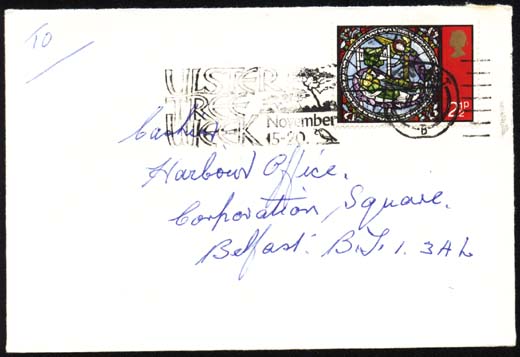 TO
ULSTER
TREE
WEEK
November
15-20
2½P
B
Cashier
Harbour Office.
Corporation Square.
Belfast. B.T.1. 3AL